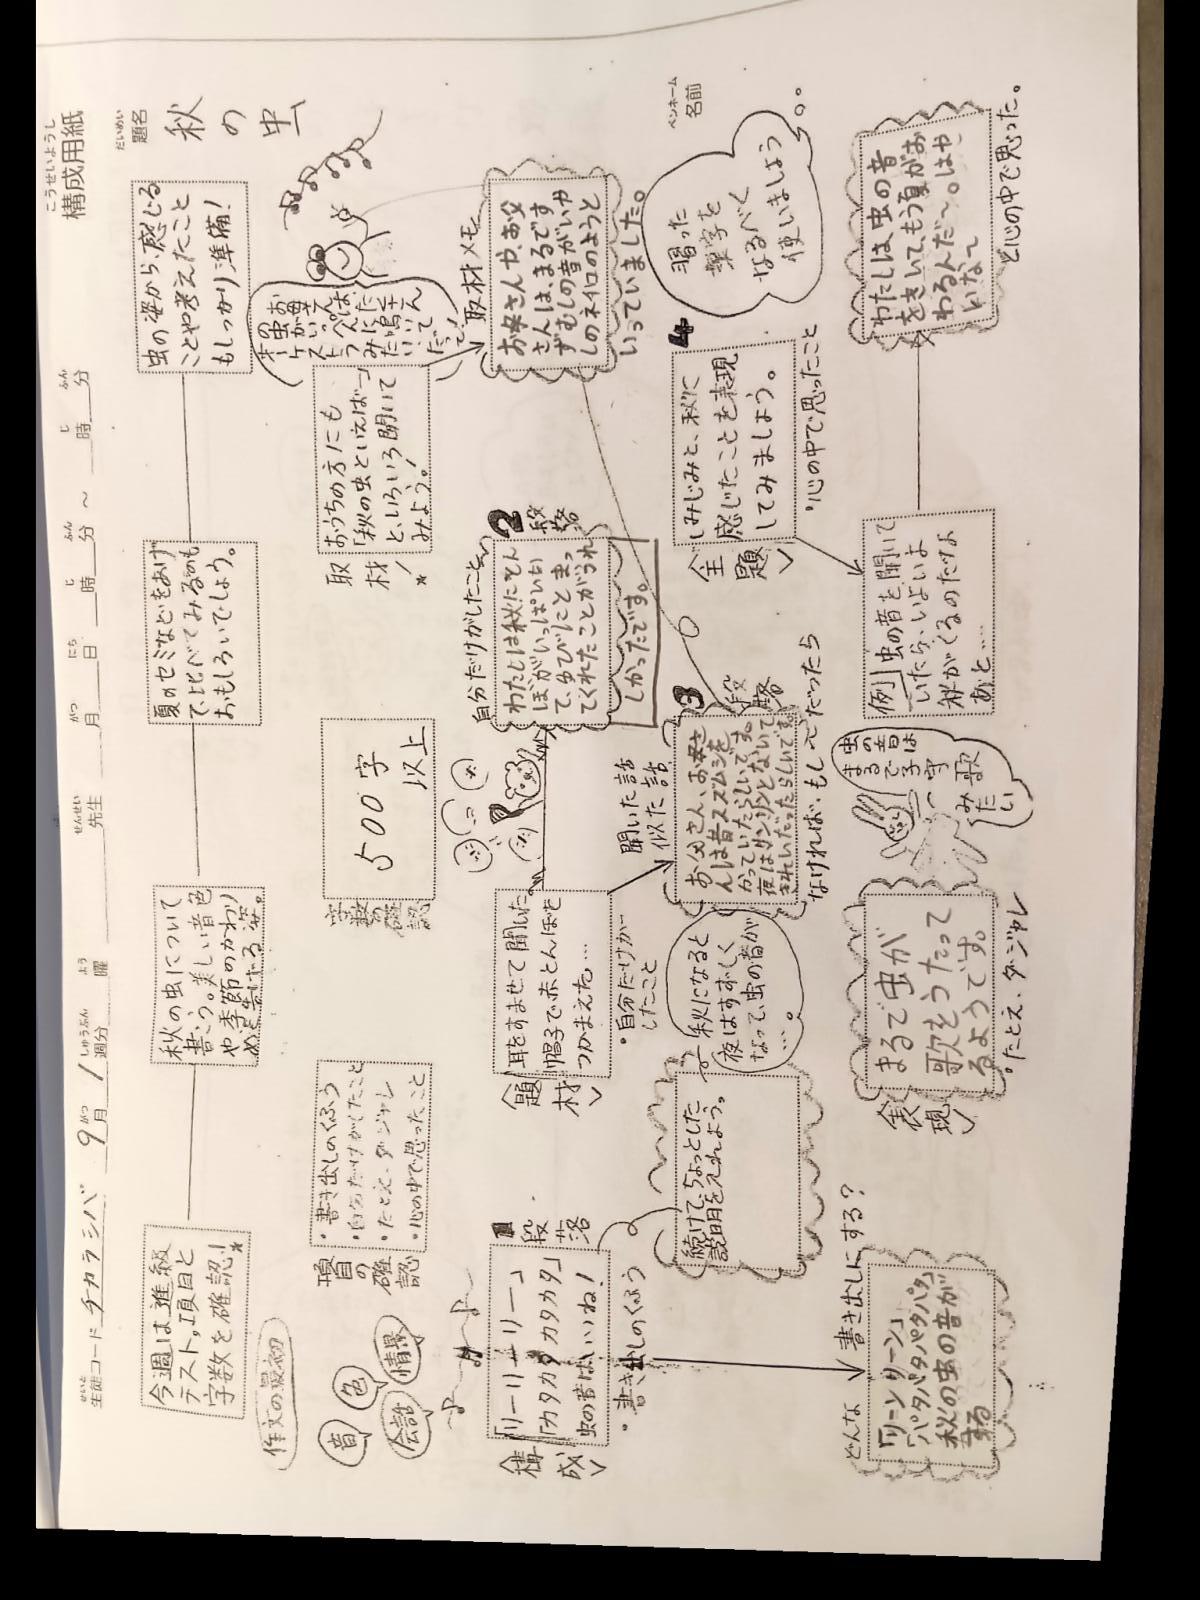 構成用紙
こうせいようし
生徒コード チカラシバ 9月 1週分 曜 先生 月 日 時 分 ～ 時 分
題名
だいめい
秋の虫
ペンネーム
名前
今週は進級
テスト。項目と
字数を確認！
秋の虫について
書こう。美しい音色
や季節のかわり
めを告げる姿。
夏のセミなどをあげ
て、比べてみるのも
おもしろいでしょう。
虫の姿から、感じる
ことや考えたこと
もしっかり準備！
作文の最初
音
色
会話
情景
項目の確認
・書き出しのくふう
・自分だけがしたこと
・たとえ、ダジャレ
・心の中で思ったこと
字数の確認
500字
以上
取材！
おうちの方にも
「秋の虫といえば…」
と、いろいろ聞いて
みよう！
取材メモ
1段落
構成
「リーリーリー」
「カタカタカタカタ」
虫の音はいいね！
・書き出しのくふう
題材
耳をすませて聞いた
帽子で赤とんぼを
つかまえた…
・自分だけが
したこと
2段落
自分だけがしたこと
わたしは秋にとん
ぼがいっぱいい
て、ゆびにとまっ
てくれたことがうれ
しかったです。
お母さんや、お父
さんは、まるです
ずむしの音がいや
しのネイロのようと
いっていました。
続けて、ちょっとした
説明を入れよう。
秋になると
夜はすずしく
なって、虫の音が
…。
聞いた話
似た話
3段落
お父さん、お母さ
んは昔スズムシを
かっていたらしいです。
夜はリンリンとないて
きれいだったらしいです
なければ、もし～だったら
4
主題
しみじみと、秋に
感じたことを表現
してみましょう。
・心の中で思ったこと
習った
漢字を
なるべく
使いましょう
どんな書き出しにする？
「リーンリーン」
「パタパタパタパタ」
秋の虫の音が
表現
まるで虫が
歌をうたって
るようです。
・たとえ、ダジャレ
虫の音は
まるで子守
歌
みたい
例
虫の音を聞いて
いたら、いよいよ
秋がくるのだなぁ
と…
わたしは、虫の音
をきいて、もう夏がお
わるんだ～。はや
いなて
と心の中で思った。